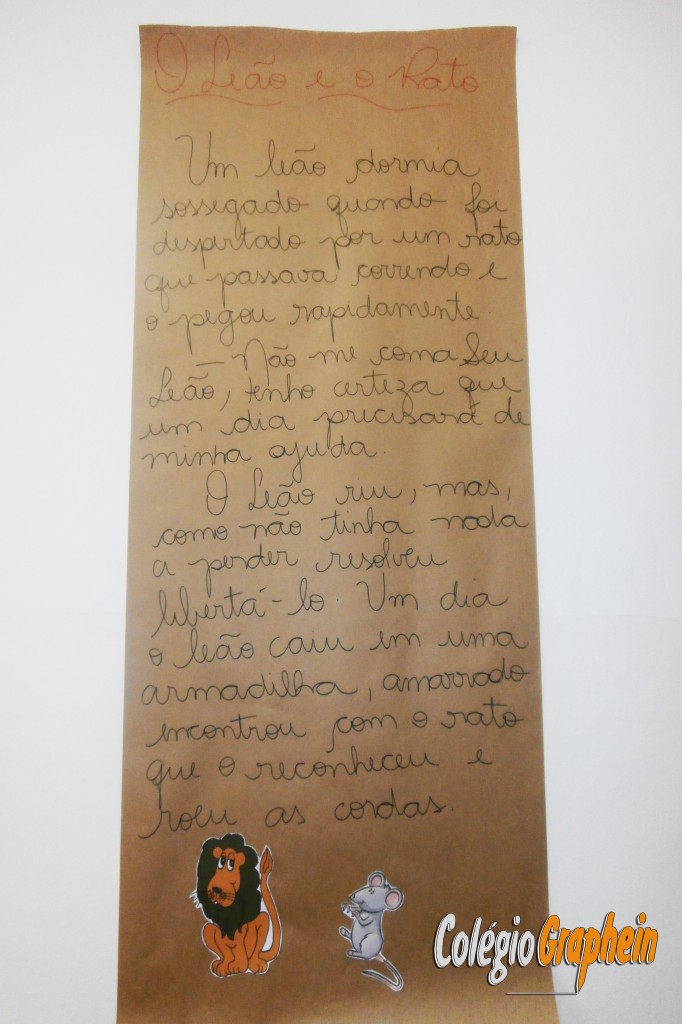 O Leão e o Rato
Um leão dormia
sossegado quando foi
despertado por um rato
que passava correndo e
o pegou rapidamente
– Não me coma Seu
Leão, tenho certeza que
um dia precisará de
minha ajuda.
O Leão riu, mas,
como não tinha nada
a perder resolveu
libertá-lo. Um dia
o leão caiu em uma
armadilha, amarrado
encontrou com o rato
que o reconheceu e
roeu as cordas.
Colégio Graphein